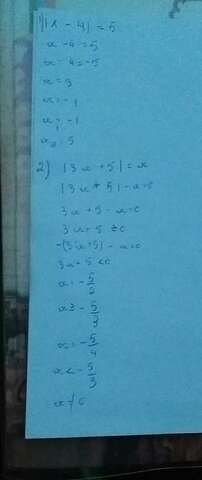 1) |x - 4| = 5
x - 4 = 5
x - 4 = -5
x = 9
x = -1
x₁ = -1
x₂ = 9
2) |3x + 5| = x
|3x + 5| - x = 0
3x + 5 - x = 0
3x + 5 ≥ 0
-(3x+5) - x = 0
3x + 5 < 0
x = - 5/2
x ≥ - 5/3
x = - 5/4
x < - 5/3
x ∉ ∅